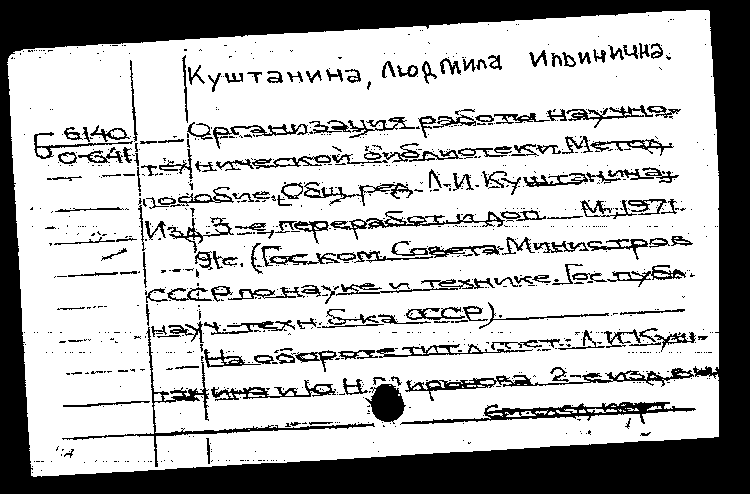 Куштанина, Людмила Ильинична.
Б 6140
0-641
Организация работы научно-
технической библиотеки. Метод.
пособие. [Общ. ред. Л.И. Куштанина].
Изд. 3-е, переработ. и доп. М., 1971.
91с. (Гос. ком. Совета Министров
СССР по науке и технике. Гос. публ.
науч.-техн. б-ка СССР).
На обороте тит. л. сост.: Л.И. Куш-
танина и Ю.Н. 2-е изд.
См. след. карт.